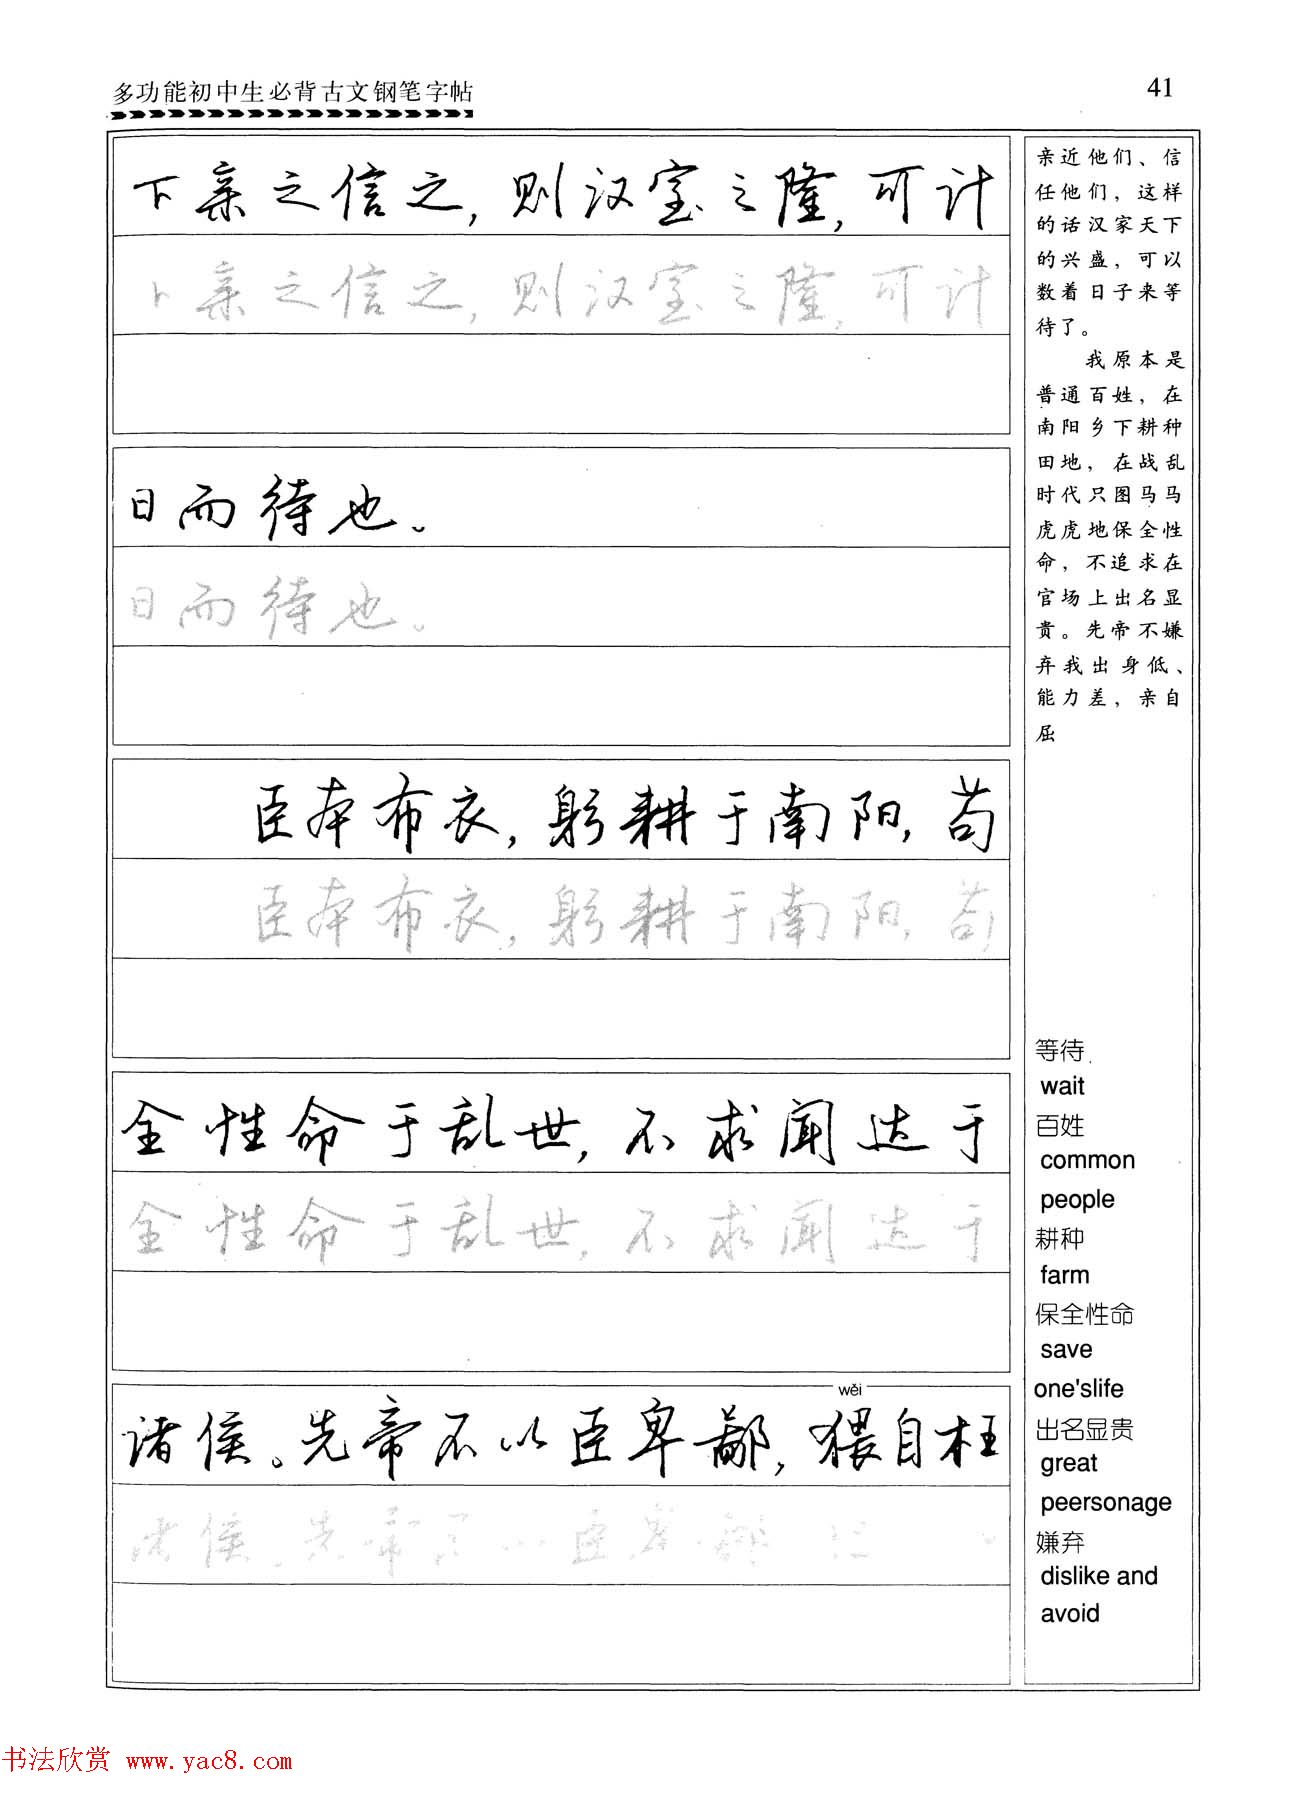 多功能初中生必背古文钢笔字帖
41
下亲之信之,则汉室之隆,可计
下亲之信之,则汉室之隆,可计
日而待也。
日而待也。
臣本布衣,躬耕于南阳,苟
臣本布衣,躬耕于南阳,苟
全性命于乱世,不求闻达于
全性命于乱世,不求闻达于
wěi
诸侯。先帝不以臣卑鄙,猥自枉
诸侯。先帝不以臣卑鄙
亲近他们、信
任他们，这样
的话汉家天下
的兴盛，可以
数着日子来等
待了。
我原本是
普通百姓，在
南阳乡下耕种
田地，在战乱
时代只图马马
虎虎地保全性
命，不追求在
官场上出名显
贵。先帝不嫌
弃我出身低、
能力差，亲自
屈
等待
wait
百姓
common
people
耕种
farm
保全性命
save
one'slife
出名显贵
great
peersonage
嫌弃
dislike and
avoid
书法欣赏 www.yac8.com